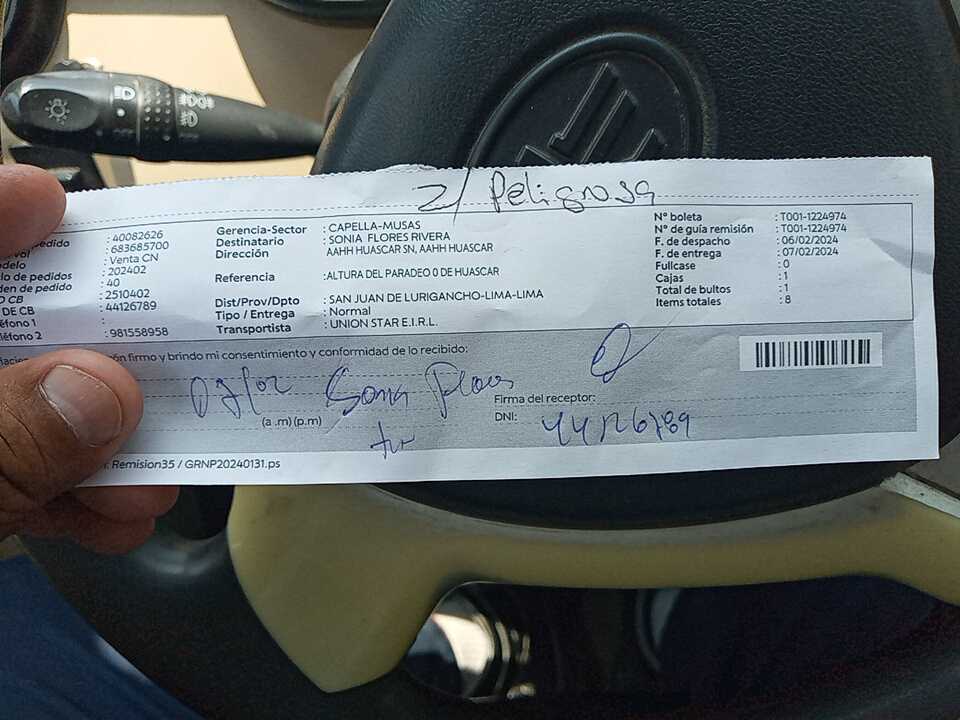 2/ Peligrosa
pedido : 40082626
: 683685700
delo : Venta CN
lo de pedidos : 202402
den de pedido : 40
CB : 2510402
DE CB : 44126789
léfono 1 :
léfono 2 : 981558958
Gerencia-Sector : CAPELLA-MUSAS
Destinatario : SONIA FLORES RIVERA
Dirección AAHH HUASCAR SN, AAHH HUASCAR
Referencia :ALTURA DEL PARADEO 0 DE HUASCAR
Dist/Prov/Dpto : SAN JUAN DE LURIGANCHO-LIMA-LIMA
Tipo / Entrega : Normal
Transportista : UNION STAR E.I.R.L.
N° boleta : T001-1224974
N° de guía remisión : T001-1224974
F. de despacho : 06/02/2024
F. de entrega : 07/02/2024
Fullcase : 0
Cajas : 1
Total de bultos : 1
Items totales : 8
ón firmo y brindo mi consentimiento y conformidad de lo recibido:
07/02 Sonia Flores
(a .m) (p.m)
Firma del receptor:
DNI: 44126789
Remision35 / GRNP20240131.ps